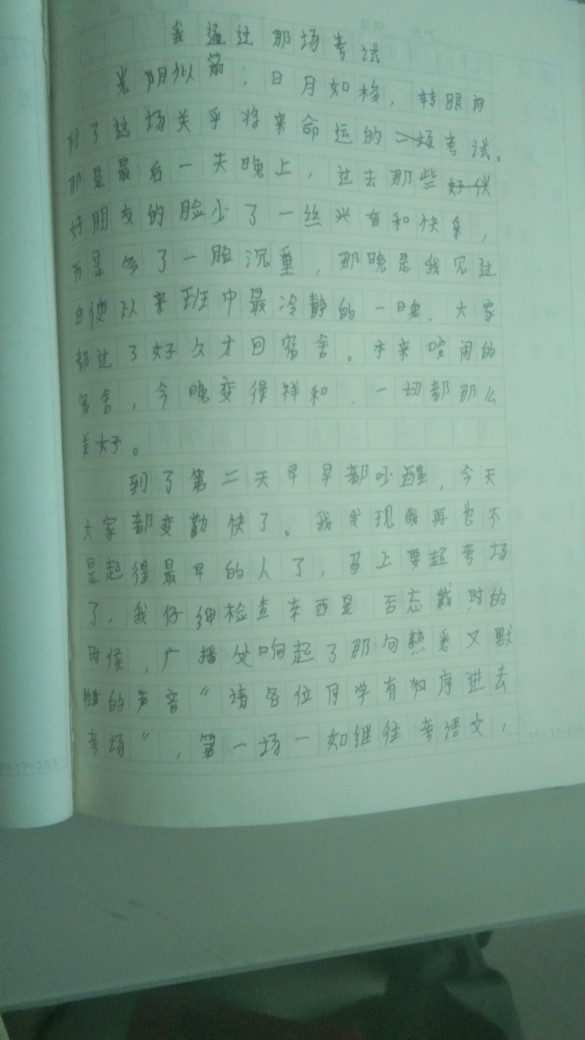 我通过那场考试
光阴似箭;日月如梭,转眼间
到了这场关乎将来命运的一场考试。
那是最后一天晚上,过去那些
好朋友的脸少了一丝兴奋和快乐,
而是多了一脸沉重,那晚是我见过
以来班中最冷静的一晚、大家
都过了好久才回宿舍。本来喧闹的
宿舍,今晚变得祥和,一切都那么
美好。
到了第二天早早都吵醒,今天
大家都变勤快了。我发现我再也不
是起得最早的人了,马上要起考场
了,我仔细检查东西是否忘戴时的
时候,广播处响起了那句熟悉又默
的声音“请各位同学有权序进去
考场”,第一场一如继往考语文,